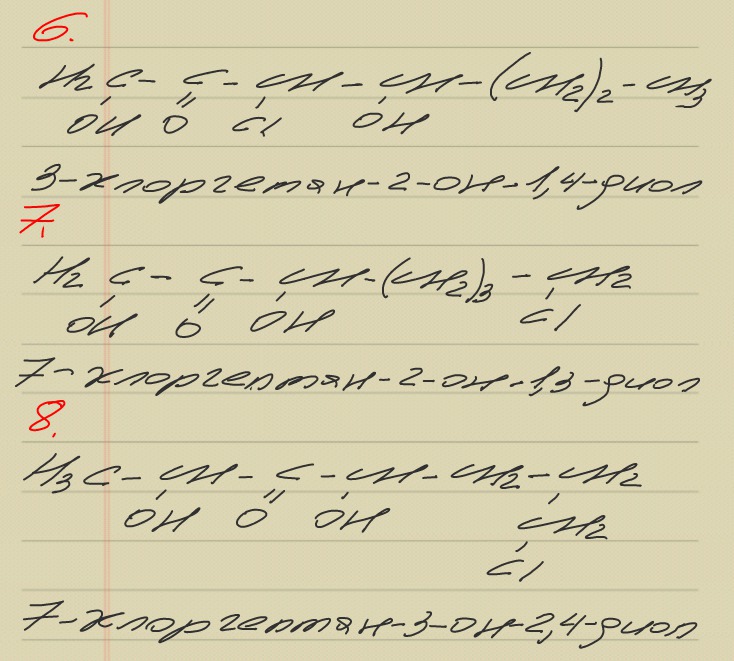 6.
H2C - C - CH - CH - (CH2)2 - CH3
OH O Cl OH
3-хлоргептан-2-он-1,4-диол
7.
H2C - C - CH - (CH2)3 - CH2
OH O OH Cl
7-хлоргептан-2-он-1,3-диол
8.
H3C - CH - C - CH - CH2 - CH2
OH O OH CH2
Cl
7-хлоргептан-3-он-2,4-диол